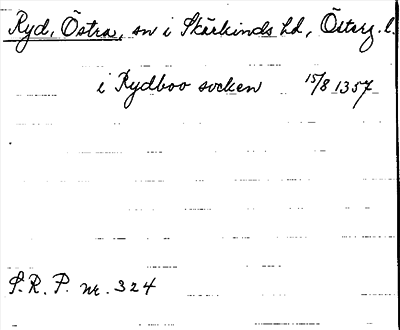 Ryd, Östra, sn i Skärkinds hd, Österg. l.
i Rydboo socken 15/8 1357
S.R.P. nr. 324